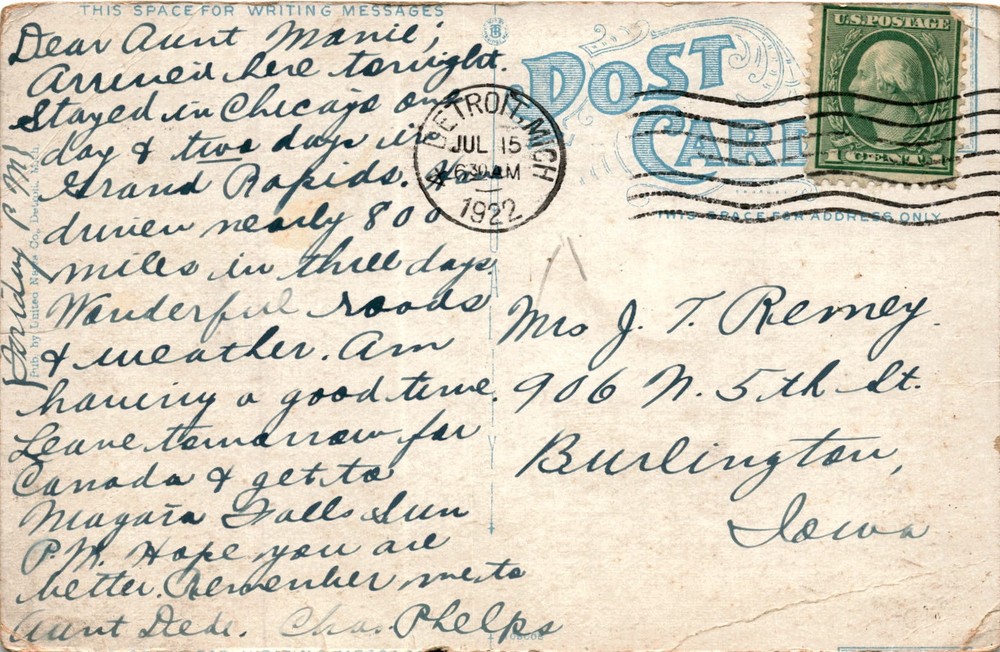 THIS SPACE FOR WRITING MESSAGES
Dear Aunt Mamie;
Arrived here tonight.
Stayed in Chicago one
day & two days in
Grand Rapids.
driven nearly 800
miles in three days
Wonderful roads
& weather. Am
having a good time.
Leave tomorrow for
Canada & get to
Niagara Falls Sun
P.M. Hope you are
better. Remember me to
Aunt Dede. Chas. Phelps
Friday P M
Pub. by United News Co., Detroit, Mich.
POST
CARD
THIS SPACE FOR ADDRESS ONLY
U.S. POSTAGE
1 CENT 1
DETROIT, MICH
JUL 15
630 AM
1922
Mrs J. T. Remey.
906 N. 5th St.
Burlington,
Iowa